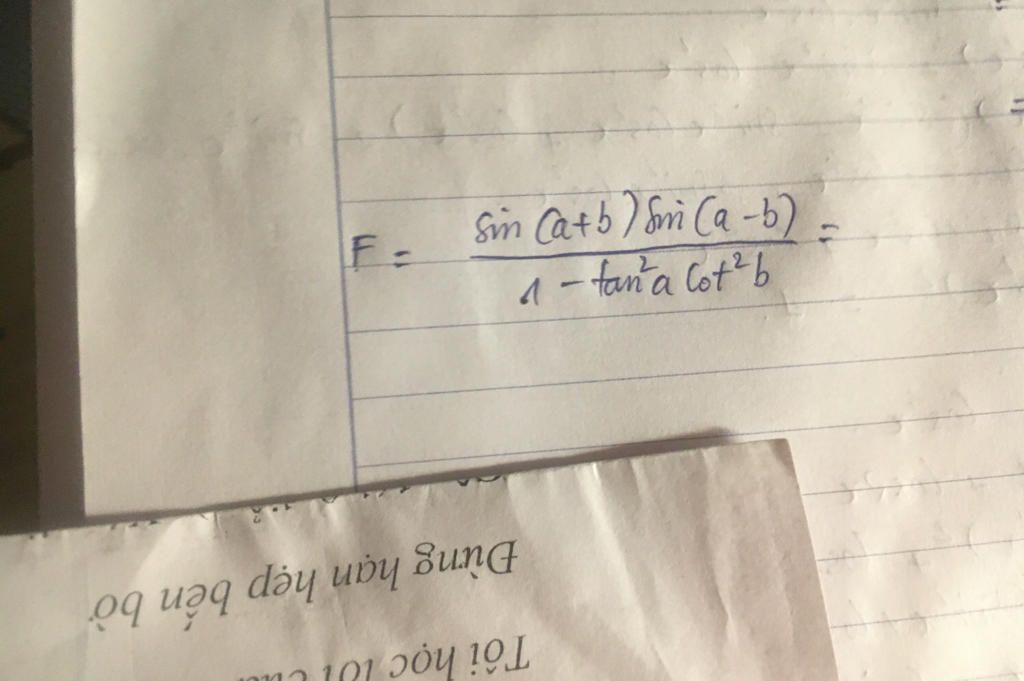 F = sin (a+b) sin (a-b) / 1 - tan²a cot²b =
Đừng hạn hẹp bến bờ
Tôi học lời